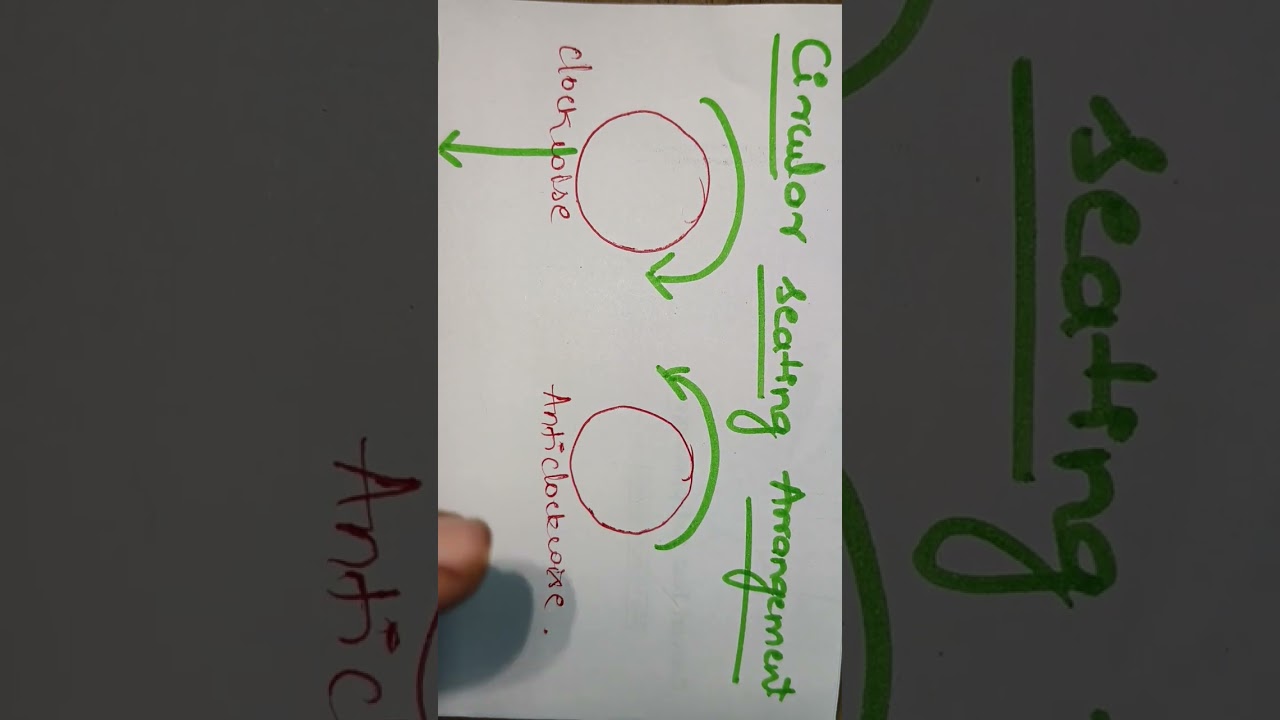 Circular seating Arrangement
Clockwise
Anticlockwise.
seating
Antic